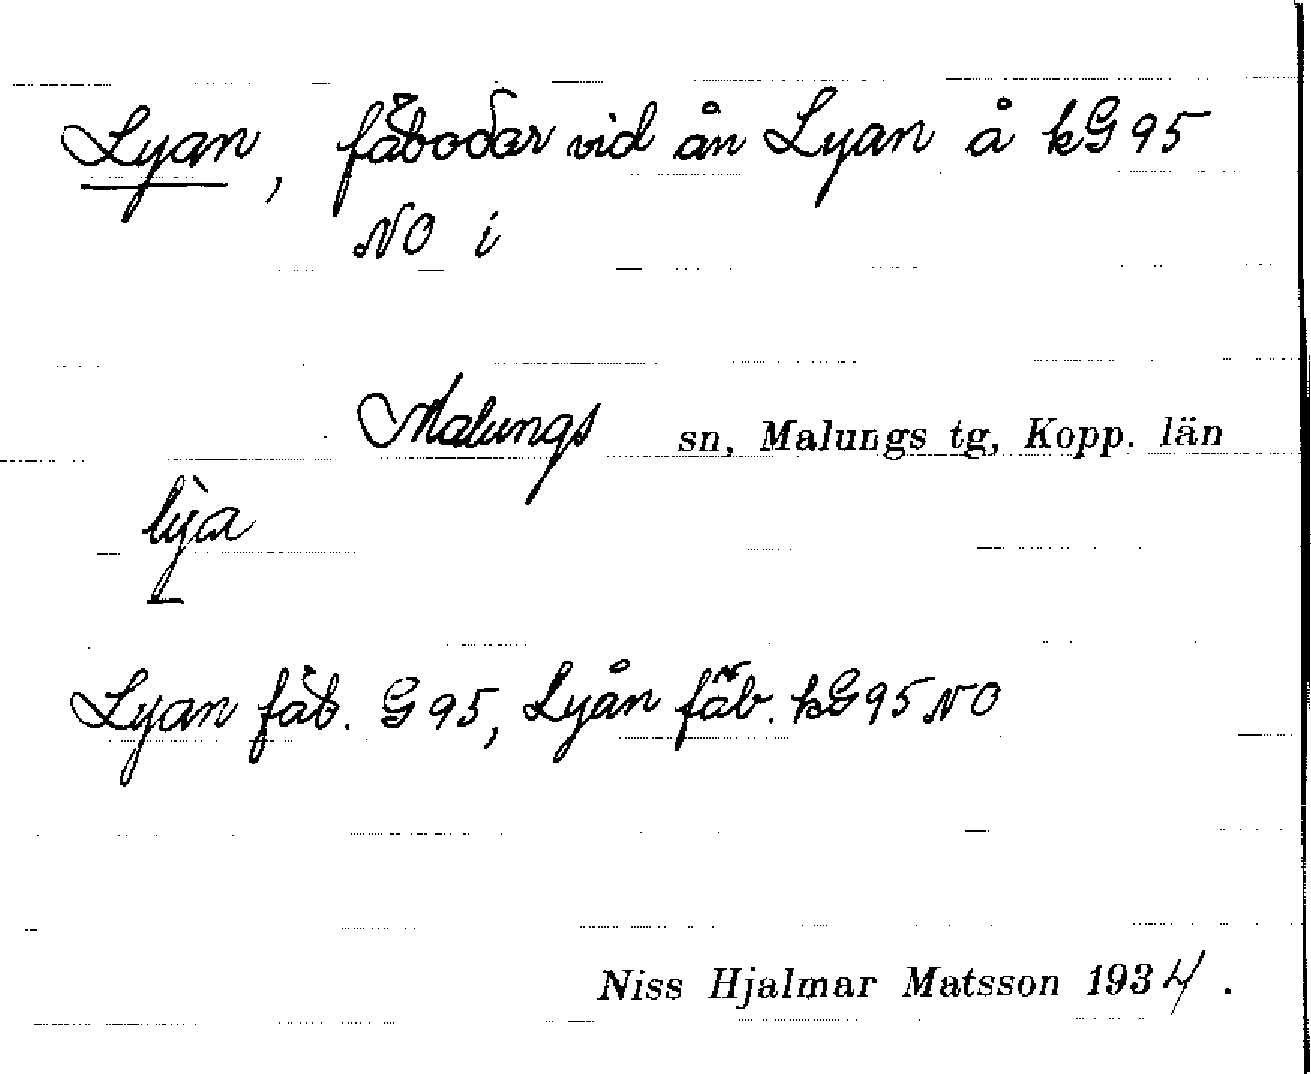 Lyan, fäbodar vid ån Lyan å kG 95
NO i
Malungs sn, Malungs tg, Kopp. län
lỳa
Lyan fäb. G 95, Lyån fäb. kG 95 NO
Niss Hjalmar Matsson 1934.